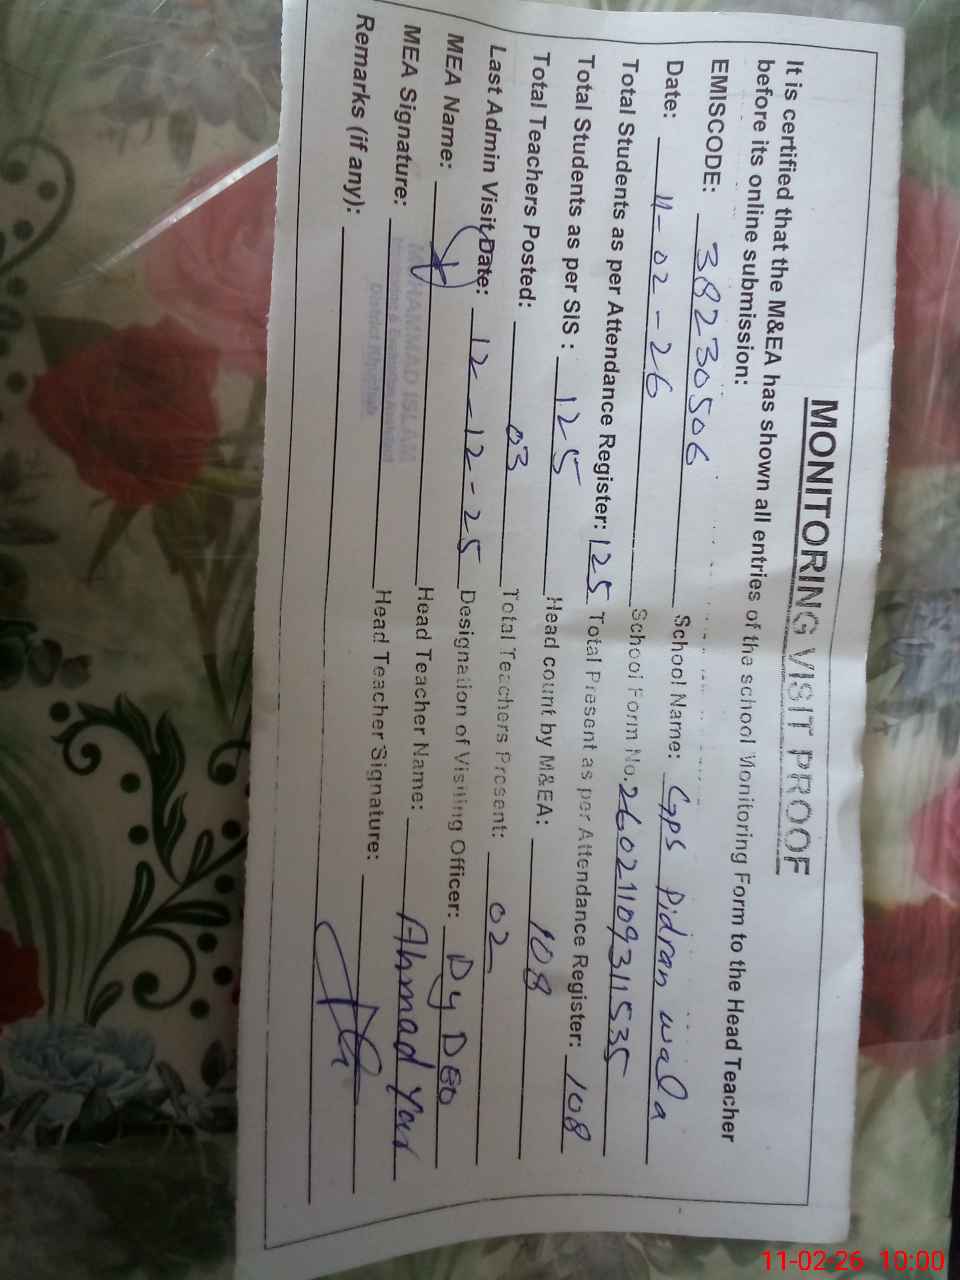 MONITORING VISIT PROOF
It is certified that the M&EA has shown all entries of the school Monitoring Form to the Head Teacher
before its online submission:
EMISCODE: 38230506 School Name: Gps Pidran wala
Date: 11-02-26 School Form No. 26021109311535
Total Students as per Attendance Register: 125 Total Present as per Attendance Register: 108
Total Students as per SIS : 125 Head count by M&EA: 108
Total Teachers Posted: 03 Total Teachers Present: 02
Last Admin Visit Date: 12-12-25 Designation of Visiting Officer: Dy DEO
MEA Name: Head Teacher Name: Ahmad Yar
MEA Signature: Head Teacher Signature:
MUHAMMAD ISLAM
District
Remarks (if any):
11-02-26 10:00